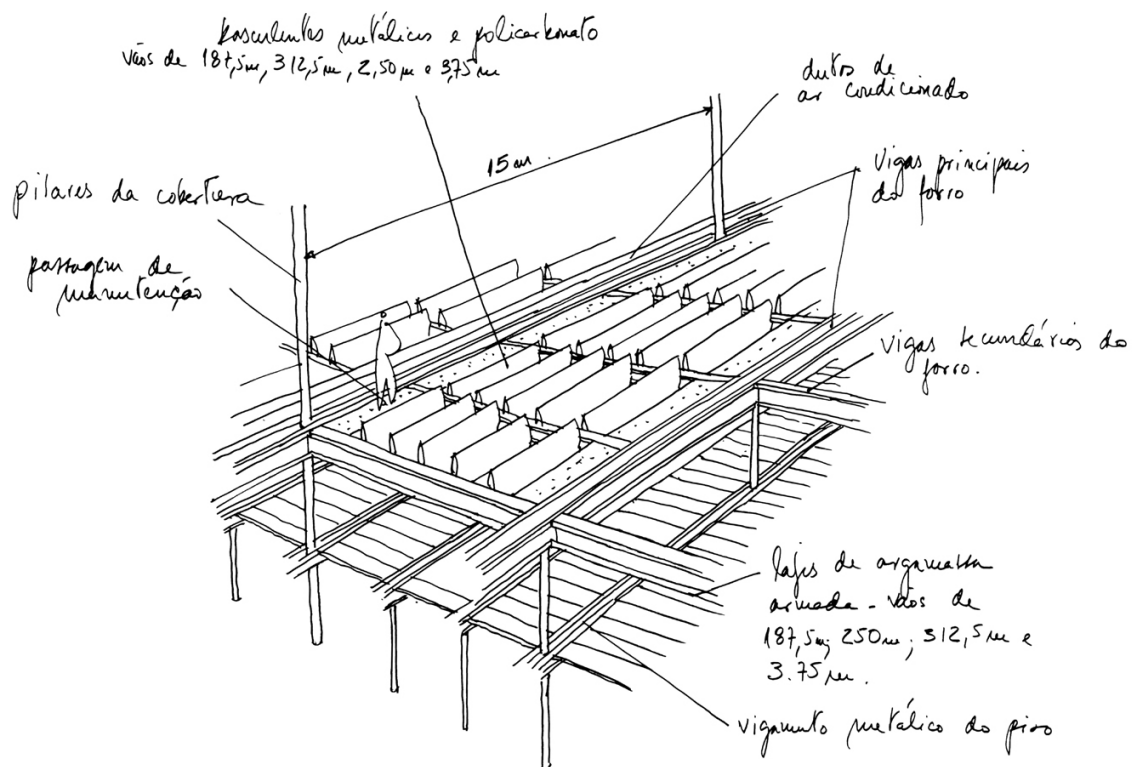 basculantes metálicos e policarbonato
vãos de 187,5m, 312,5m, 2,50m e 3,75m
dutos de
ar condicionado
15m.
vigas principais
do forro
pilares da cobertura
passagem de
manutenção
vigas secundárias do
forro.
lajes de argamassa
armada - vãos de
187,5m; 250m; 312,5m e
3.75m.
vigamento metálico do piso